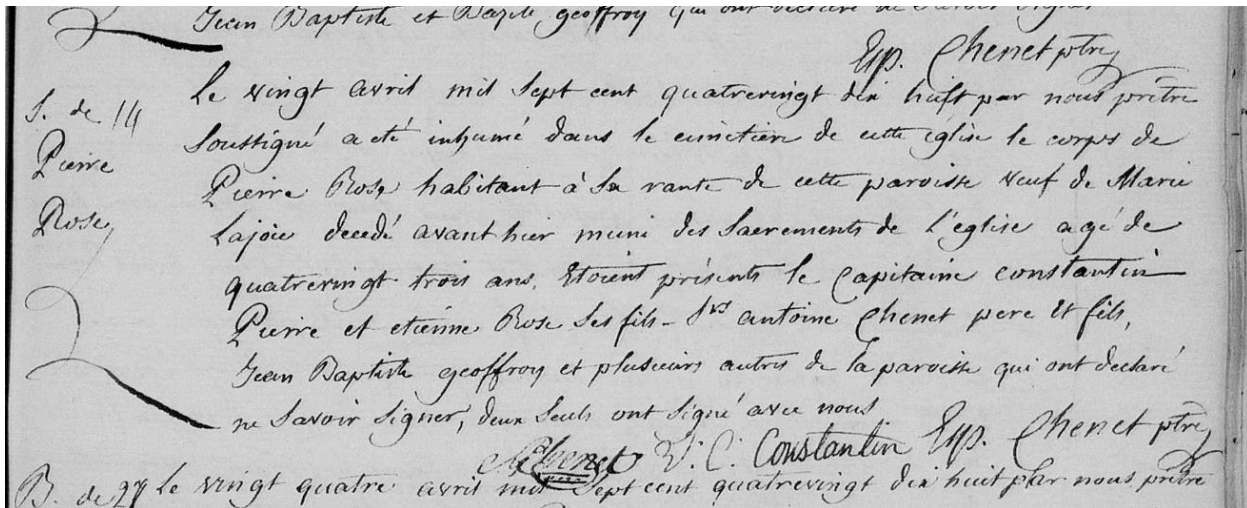 Jean Baptiste et Bazile geoffroy qui ont declaré ne Savoir Signer
Chenet ptre
S. de 14
Pierre
Rose
Le vingt avril mil Sept cent quatrevingt dix huit par nous prêtre
Soussigné a eté inhumé dans le cimetiere de cette église le corps de
Pierre Rose habitant à Sa rante de cette paroisse veuf de Marie
Lajoie decedé avant hier muni des Sacrements de L'église agé de
quatrevingt trois ans. Etoient présents le Capitaine constantin
Pierre et etienne Rose Ses fils - Srs antoine Chenet pere et fils,
Jean Baptiste geoffroy et plusieurs autres de la paroisse qui ont declaré
ne Savoir Signer, deux Seuls ont Signé avec nous
Chenet V. C. Constantin Chenet ptre
B. de 27 Le vingt quatre avril mil Sept cent quatrevingt dix huit par nous prêtre